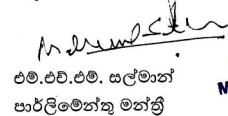 එම්.එච්.එම්. සල්මාන්
පාර්ලිමේන්තු මන්ත්‍රී